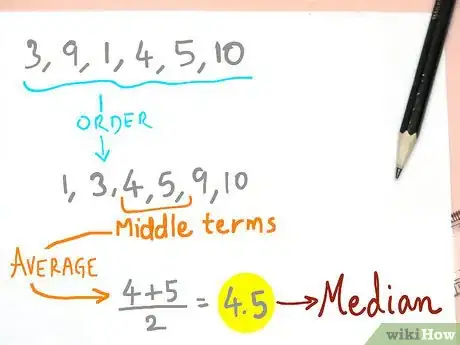 3, 9, 1, 4, 5, 10
ORDER
1, 3, 4, 5, 9, 10
Middle terms
AVERAGE
4+5
2
= 4.5 → Median
wikiHow